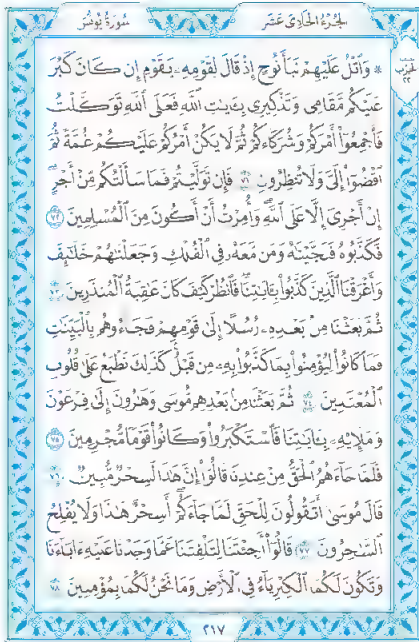 الجزء الحادى عشر
سورة يونس
۞ وَٱتۡلُ عَلَيۡهِمۡ نَبَأَ نُوحٍ إِذۡ قَالَ لِقَوۡمِهِۦ يَٰقَوۡمِ إِن كَانَ كَبُرَ
عَلَيۡكُم مَّقَامِي وَتَذۡكِيرِي بِـَٔايَٰتِ ٱللَّهِ فَعَلَى ٱللَّهِ تَوَكَّلۡتُ
فَأَجۡمِعُوٓاْ أَمۡرَكُمۡ وَشُرَكَآءَكُمۡ ثُمَّ لَا يَكُنۡ أَمۡرُكُمۡ عَلَيۡكُمۡ غُمَّةٗ ثُمَّ
ٱقۡضُوٓاْ إِلَيَّ وَلَا تُنظِرُونِ ٧١ فَإِن تَوَلَّيۡتُمۡ فَمَا سَأَلۡتُكُم مِّنۡ أَجۡرٍۖ
إِنۡ أَجۡرِيَ إِلَّا عَلَى ٱللَّهِۖ وَأُمِرۡتُ أَنۡ أَكُونَ مِنَ ٱلۡمُسۡلِمِينَ ٧٢
فَكَذَّبُوهُ فَنَجَّيۡنَٰهُ وَمَن مَّعَهُۥ فِي ٱلۡفُلۡكِ وَجَعَلۡنَٰهُمۡ خَلَٰٓئِفَ
وَأَغۡرَقۡنَا ٱلَّذِينَ كَذَّبُواْ بِـَٔايَٰتِنَاۖ فَٱنظُرۡ كَيۡفَ كَانَ عَٰقِبَةُ ٱلۡمُنذَرِينَ ٧٣
ثُمَّ بَعَثۡنَا مِنۢ بَعۡدِهِۦ رُسُلًا إِلَىٰ قَوۡمِهِمۡ فَجَآءُوهُم بِٱلۡبَيِّنَٰتِ
فَمَا كَانُواْ لِيُؤۡمِنُواْ بِمَا كَذَّبُواْ بِهِۦ مِن قَبۡلُۚ كَذَٰلِكَ نَطۡبَعُ عَلَىٰ قُلُوبِ
ٱلۡمُعۡتَدِينَ ٧٤ ثُمَّ بَعَثۡنَا مِنۢ بَعۡدِهِم مُّوسَىٰ وَهَٰرُونَ إِلَىٰ فِرۡعَوۡنَ
وَمَلَإِيْهِۦ بِـَٔايَٰتِنَا فَٱسۡتَكۡبَرُواْ وَكَانُواْ قَوۡمٗا مُّجۡرِمِينَ ٧٥
فَلَمَّا جَآءَهُمُ ٱلۡحَقُّ مِنۡ عِندِنَا قَالُوٓاْ إِنَّ هَٰذَا لَسِحۡرٞ مُّبِينٞ ٧٦
قَالَ مُوسَىٰٓ أَتَقُولُونَ لِلۡحَقِّ لَمَّا جَآءَكُمۡۖ أَسِحۡرٌ هَٰذَا وَلَا يُفۡلِحُ
ٱلسَّٰحِرُونَ ٧٧ قَالُوٓاْ أَجِئۡتَنَا لِتَلۡفِتَنَا عَمَّا وَجَدۡنَا عَلَيۡهِ ءَابَآءَنَا
وَتَكُونَ لَكُمَا ٱلۡكِبۡرِيَآءُ فِي ٱلۡأَرۡضِ وَمَا نَحۡنُ لَكُمَا بِمُؤۡمِنِينَ ٧٨
٢١٧